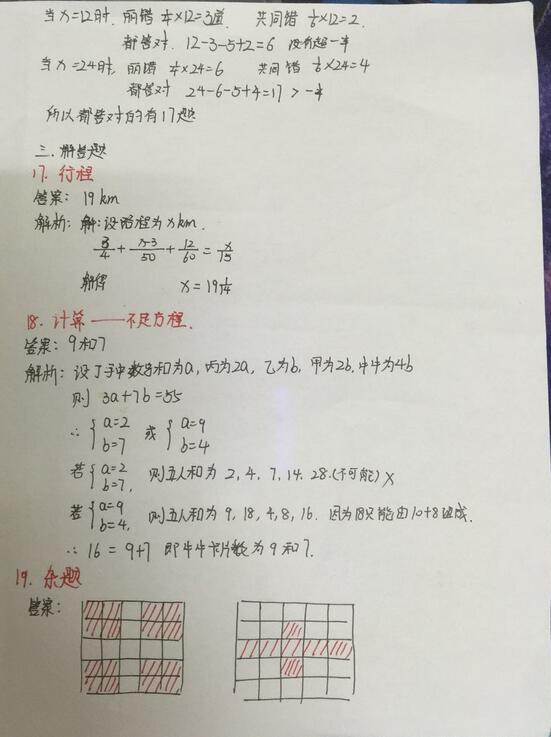 当x=12时, 丽错 1/4×12=3道. 共同错 1/6×12=2.
都答对. 12-3-5+2=6 没有超一半
当x=24时, 丽错 1/4×24=6 共同错 1/6×24=4
都答对 24-6-5+4=17 > 一半
所以都答对的有17题
三、解答题
17. 行程
答案: 19km
解析: 解:设路程为xkm.
3/4 + (x-3)/50 + 12/60 = x/15
解得 x=19 1/14
18. 计算——不定方程.
答案: 9和7
解析: 设丁手中数字和为a, 丙为2a, 乙为b, 甲为2b, 牛牛为4b
则 3a+7b=55
∴ {a=2 b=7 或 {a=9 b=4
若{a=2 b=7, 则五人和为 2, 4, 7, 14, 28.(不可能) ×
若{a=9 b=4, 则五人和为 9, 18, 4, 8, 16. 因为18只能由10+8组成.
∴ 16 = 9+7 即牛牛卡片数为9和7.
19. 杂题
答案: